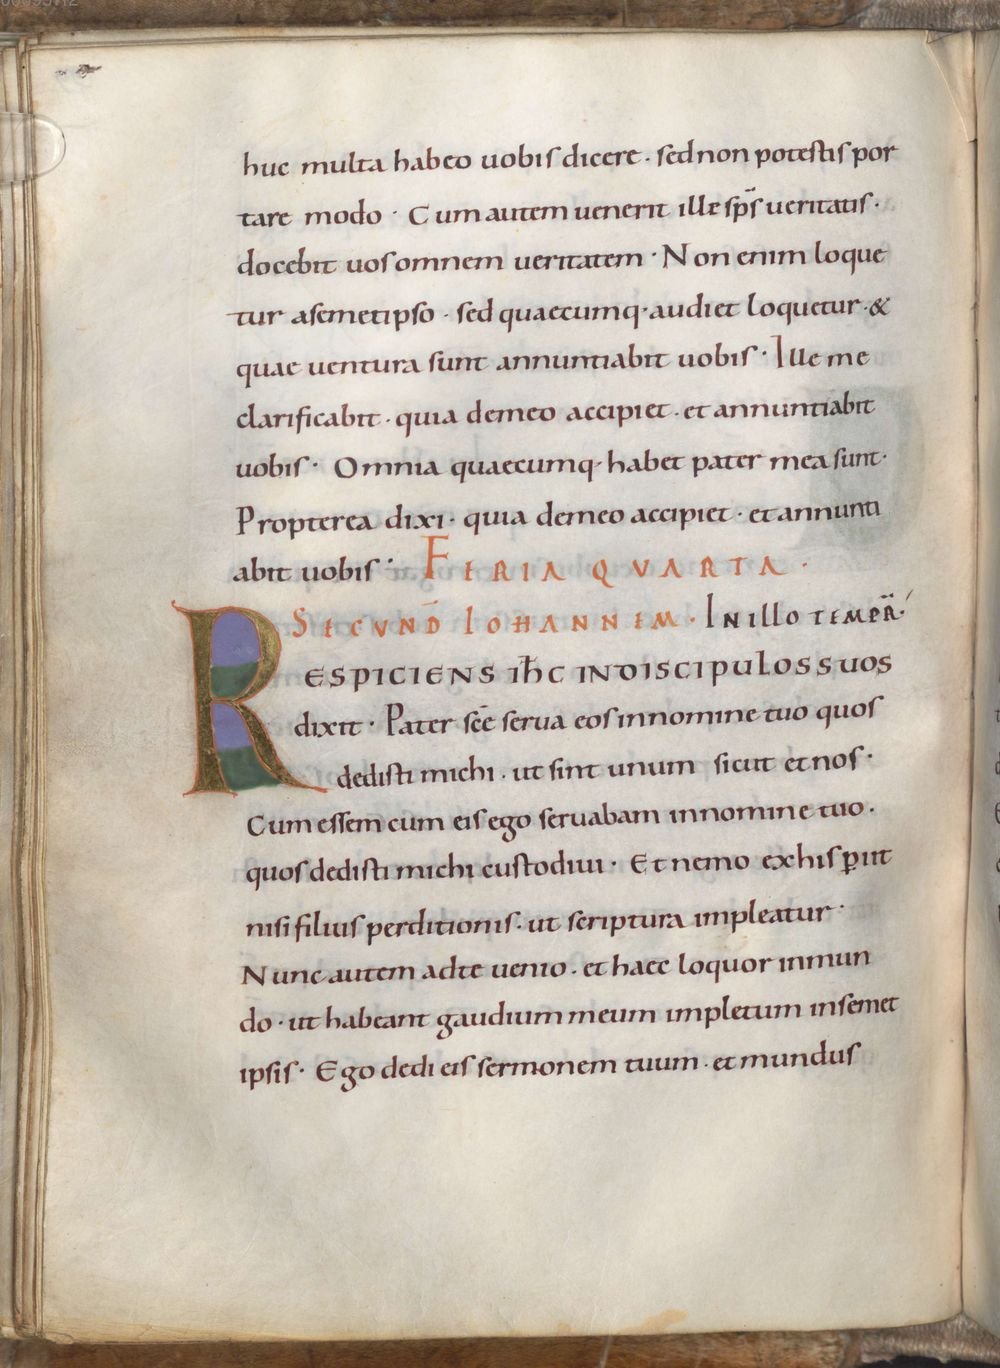 huc multa habeo uobis dicere · sed non potestis por
tare modo · Cum autem uenerit ille sp̅s ueritatis ·
docebit uos omnem ueritatem · Non enim loque
tur a semetipso · sed quaecumq· audiet loquetur · &
quae uentura sunt annuntiabit uobis · Ille me
clarificabit · quia de meo accipiet · et annuntiabit
uobis · Omnia quaecumq· habet pater mea sunt ·
Propterea dixi · quia de meo accipiet · et annunti
abit uobis · FERIA QVARTA ·
SECVND̅ IOHANNEM · IN ILLO TEMPR̅ ·
RESPICIENS ih̅c IN DISCIPULOS SUOS
dixit · Pater sc̅e serua eos in nomine tuo quos
dedisti michi · ut sint unum sicut et nos ·
Cum essem cum eis ego seruabam in nomine tuo ·
quos dedisti michi custodiui · Et nemo ex his ꝑiit
nisi filius perditionis · ut scriptura impleatur ·
Nunc autem ad te uenio · et haec loquor in mun
do · ut habeant gaudium meum impletum in semet
ipsis · Ego dedi eis sermonem tuum · et mundus